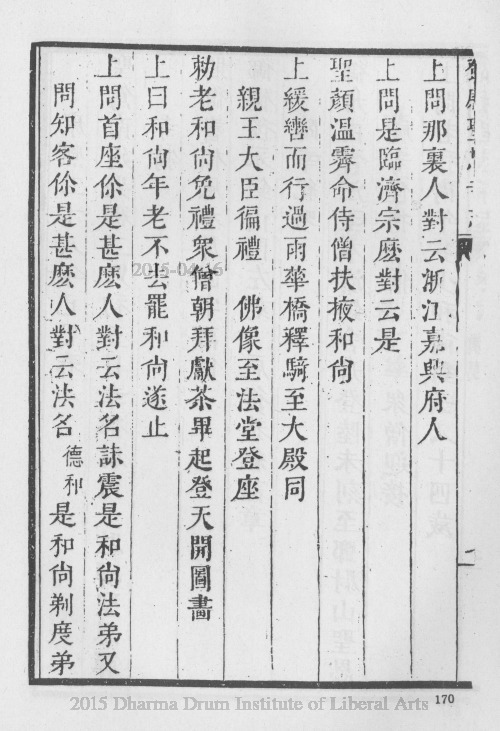 上問那裏人對云浙江嘉興府人
上問是臨濟宗麽對云是
聖顏溫霽命侍僧扶掖和尙
上緩轡而行過雨華橋釋騎至大殿同
親王大臣徧禮 佛像至法堂登座
勑老和尙免禮衆僧朝拜獻茶畢起登天開圖畵
上曰和尙年老不去罷和尙遂止
上問首座你是甚麽人對云法名誅震是和尙法弟又
問知客你是甚麽人對云法名德和是和尙剃度弟
2015-04-16
170
2015 Dharma Drum Institute of Liberal Arts